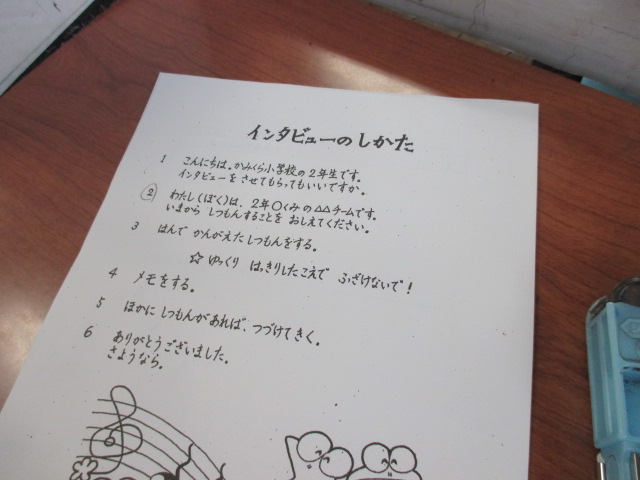 インタビューのしかた
1 こんにちは。かみくら小学校の2年生です。
インタビューをさせてもらってもいいですか。
② わたし(ぼく)は、2年〇くみの△△チームです。
いまから しつもんすることを おしえてください。
3 はんで かんがえた しつもんをする。
☆ ゆっくり はっきりしたこえで ふざけないで!
4 メモをする。
5 ほかに しつもんがあれば、つづけてきく。
6 ありがとうございました。
さようなら。